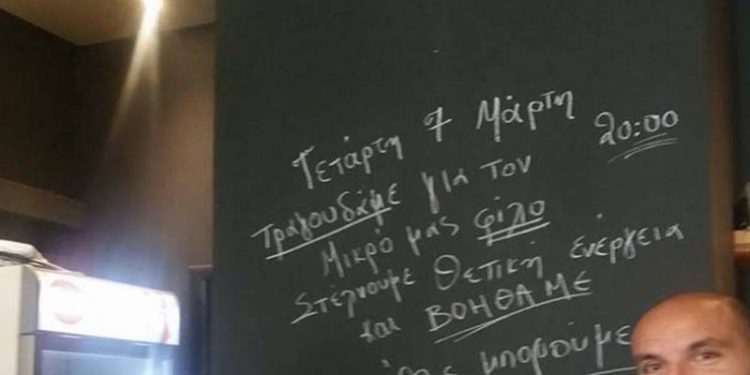 Τετάρτη 7 Μάρτη 20:00
Τραγουδάμε για τον
Μικρό μας φίλο
Στέλνουμε Θετική ενέργεια
και ΒΟΗΘΑΜΕ
μπορούμε